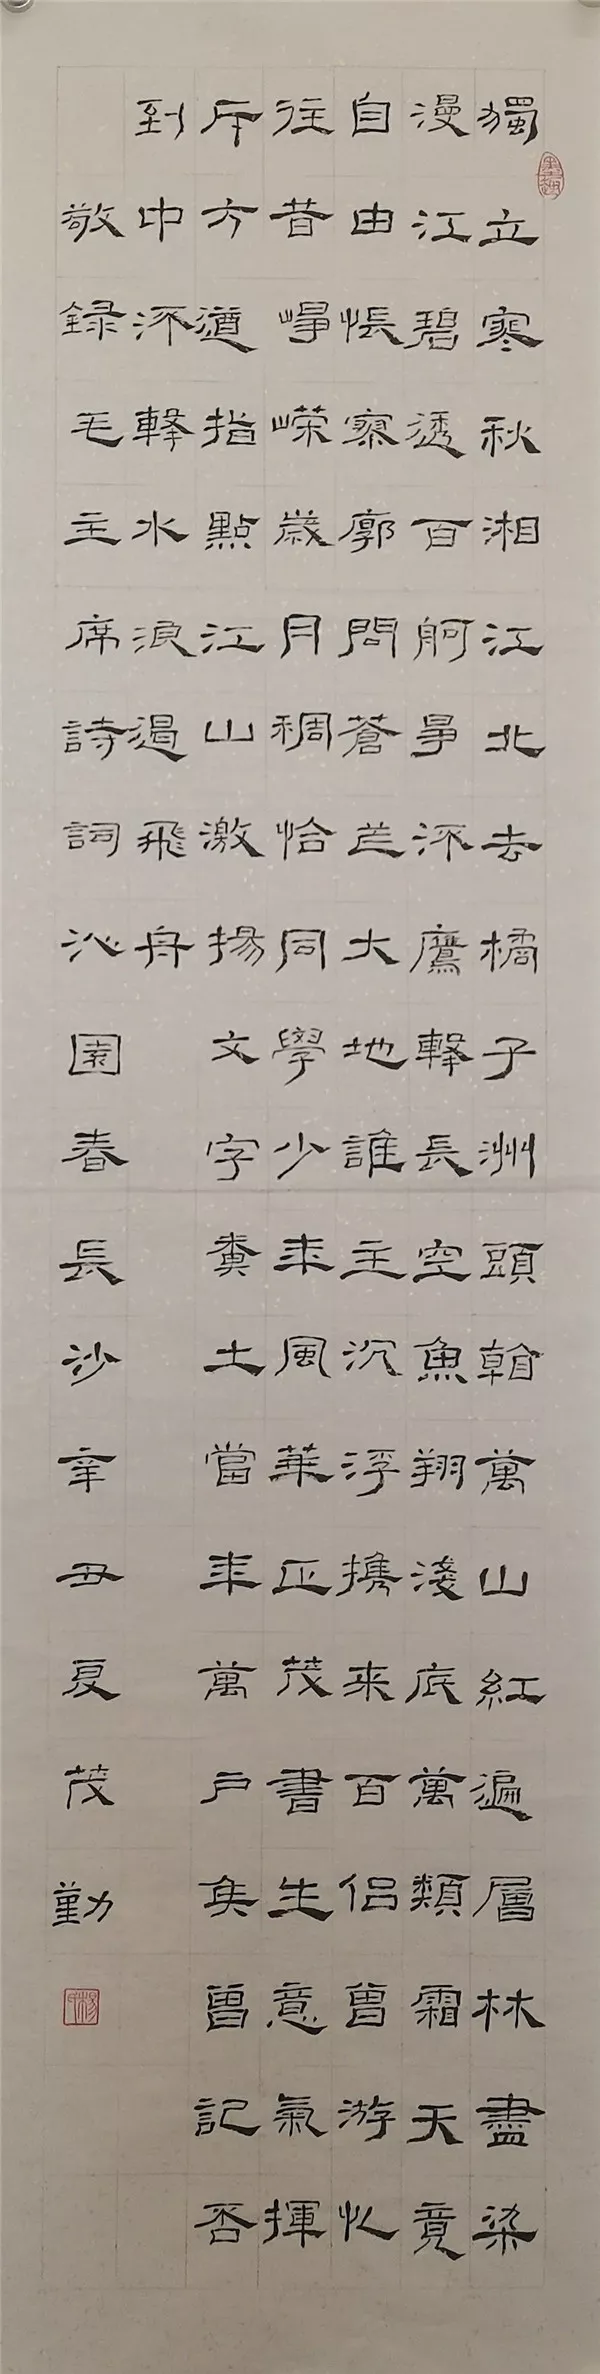 獨立寒秋湘江北去橘子洲頭看萬山紅遍層林盡染
漫江碧透百舸爭流鷹擊長空魚翔淺底萬類霜天竟
自由悵寥廓問蒼茫大地誰主沉浮携来百侶曾游忆
往昔崢嶸歲月稠恰同學少年風華正茂書生意氣揮
斥方遒指點江山激揚文字糞土當年萬戶侯曾記否
到中流擊水浪遏飛舟
敬録毛主席詩詞沁園春長沙辛丑夏茂勤